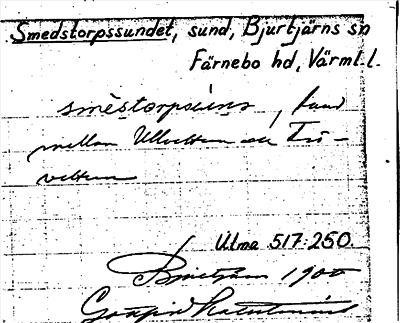 Smedstorpssundet, sund, Bjurtjärns sn
Färnebo hd, Värml. l.
sund
mellan Ullvettern och
vettern
Ulma 517:250.
Bjurtjärn 1900